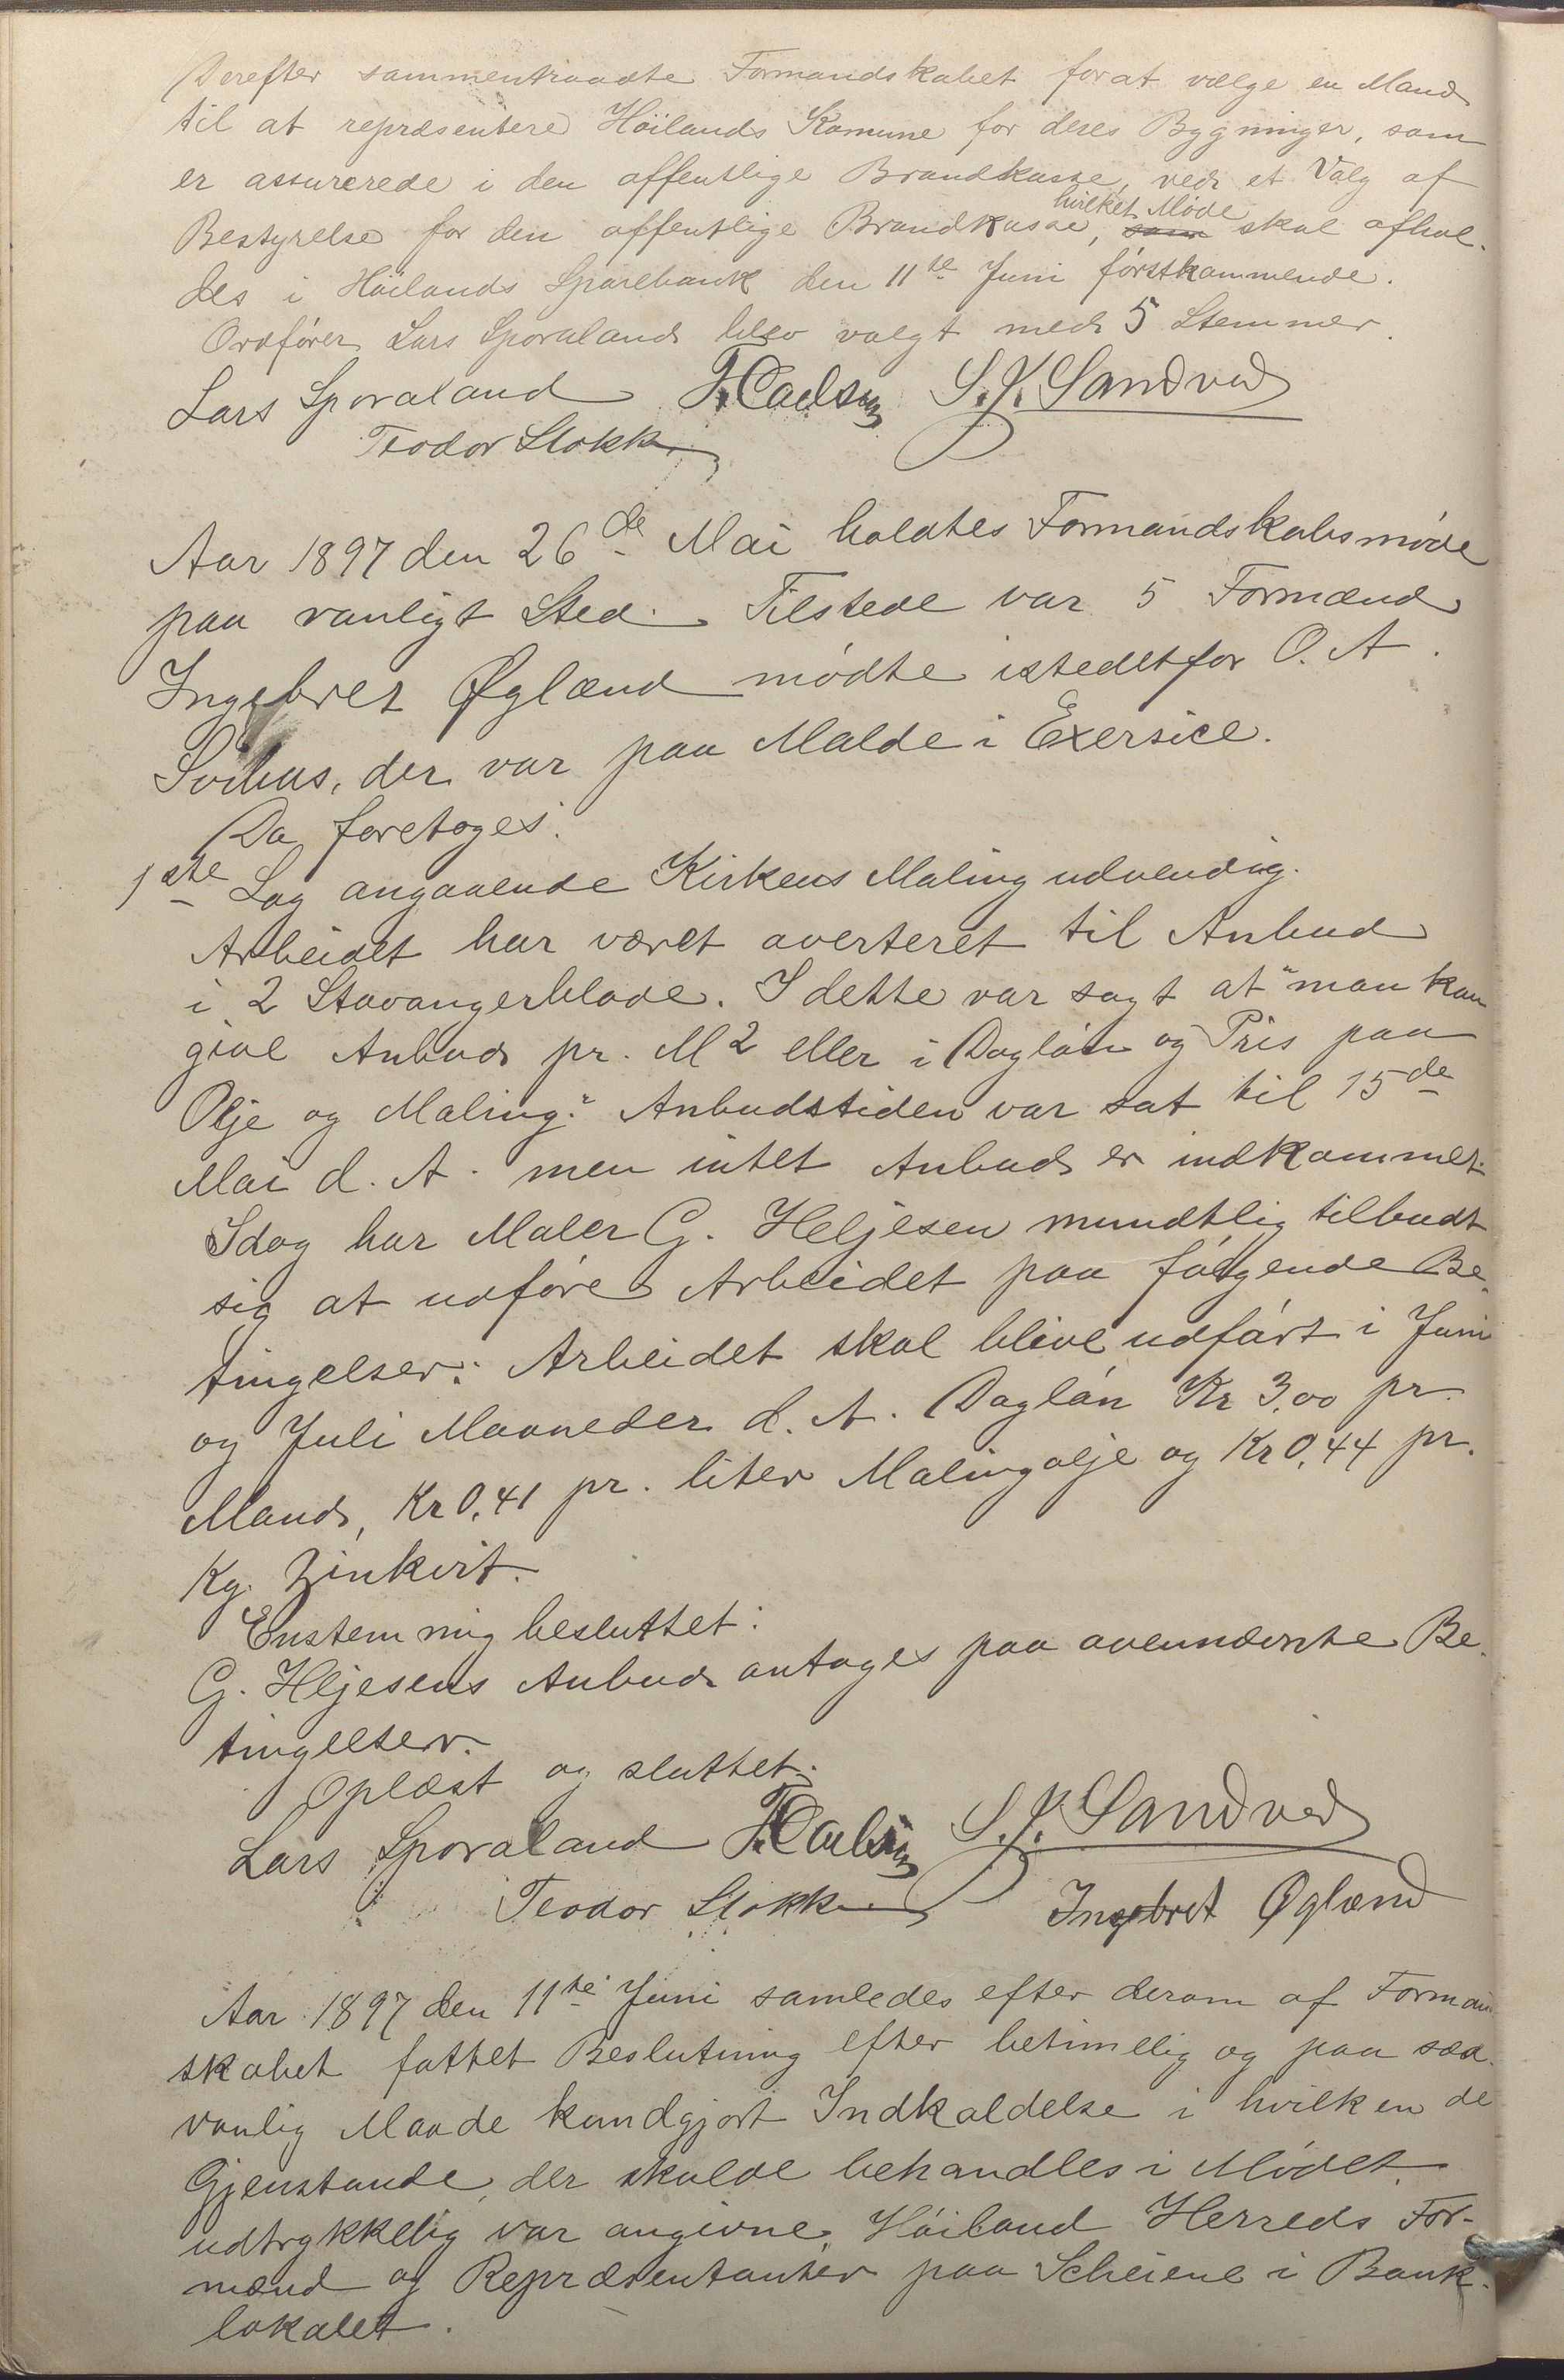 Derefter sammentraadte Formandskabet forat vælge en Mand
til at repræsentere Höilands Komune for deres Bygninger, som
er assurerede i den offentlige Brandkasse, ved et Valg af
Bestyrelse for den offentlige Brandkasse, som hvilket Møde skal afhol-
des i Höilands Sparebank den 11te Juni førstkommende.
Ordfører Lars Sporaland blev valgt med 5 Stemmer.
Lars Sporaland T. Carlsen S. K. Sandved
Teodor Stokke
Aar 1897 den 26de Mai holdtes Formandskabsmøde
paa vanligt Sted. Tilstede var 5 Formænd
Ingebret Øglænd mødte istedetfor O. A.
Svihus, der var paa Malde i Exersice.
Da foretoges:
1ste Sag angaaende Kirkens Maling udvendig.
Arbeidet har været averteret til Anbud
i 2 Stavangerblade. I dette var sagt at "man kan
give Anbud pr. M2 eller i Dagløn og Pris paa
Olje og Maling." Anbudstiden var sat til 15de
Mai d. A. men intet Anbud er indkommet.
Idag har Maler G. Heljesen mundtlig tilbudt
sig at udføre Arbeidet paa følgende Be-
tingelser: Arbeidet skal blive udført i Juni
og Juli Maaneder d. A. Dagløn Kr 3,00 pr.
Mand, Kr 0,41 pr. liter Malingolje og Kr 0,44 pr.
Kg. Zinkvit.
Enstemmig besluttet:
G. Hljesens Anbud antages paa ovennævnte Be-
tingelser.
Oplæst og sluttet.
Lars Sporaland T. Carlsen S. K. Sandved
Teodor Stokke Ingebret Øglænd
Aar 1897 den 11te Juni samledes efter derom af Forman
skabet fattet Beslutning efter betimelig og paa sæd-
vanlig Maade kundgjort Indkaldelse i hvilken de
Gjenstande, der skulde behandles i Mødet
udtrykkelig var angivne, Höiland Herreds For-
mænd og Repræsentanter paa Scheiene i Bank-
lokalet.